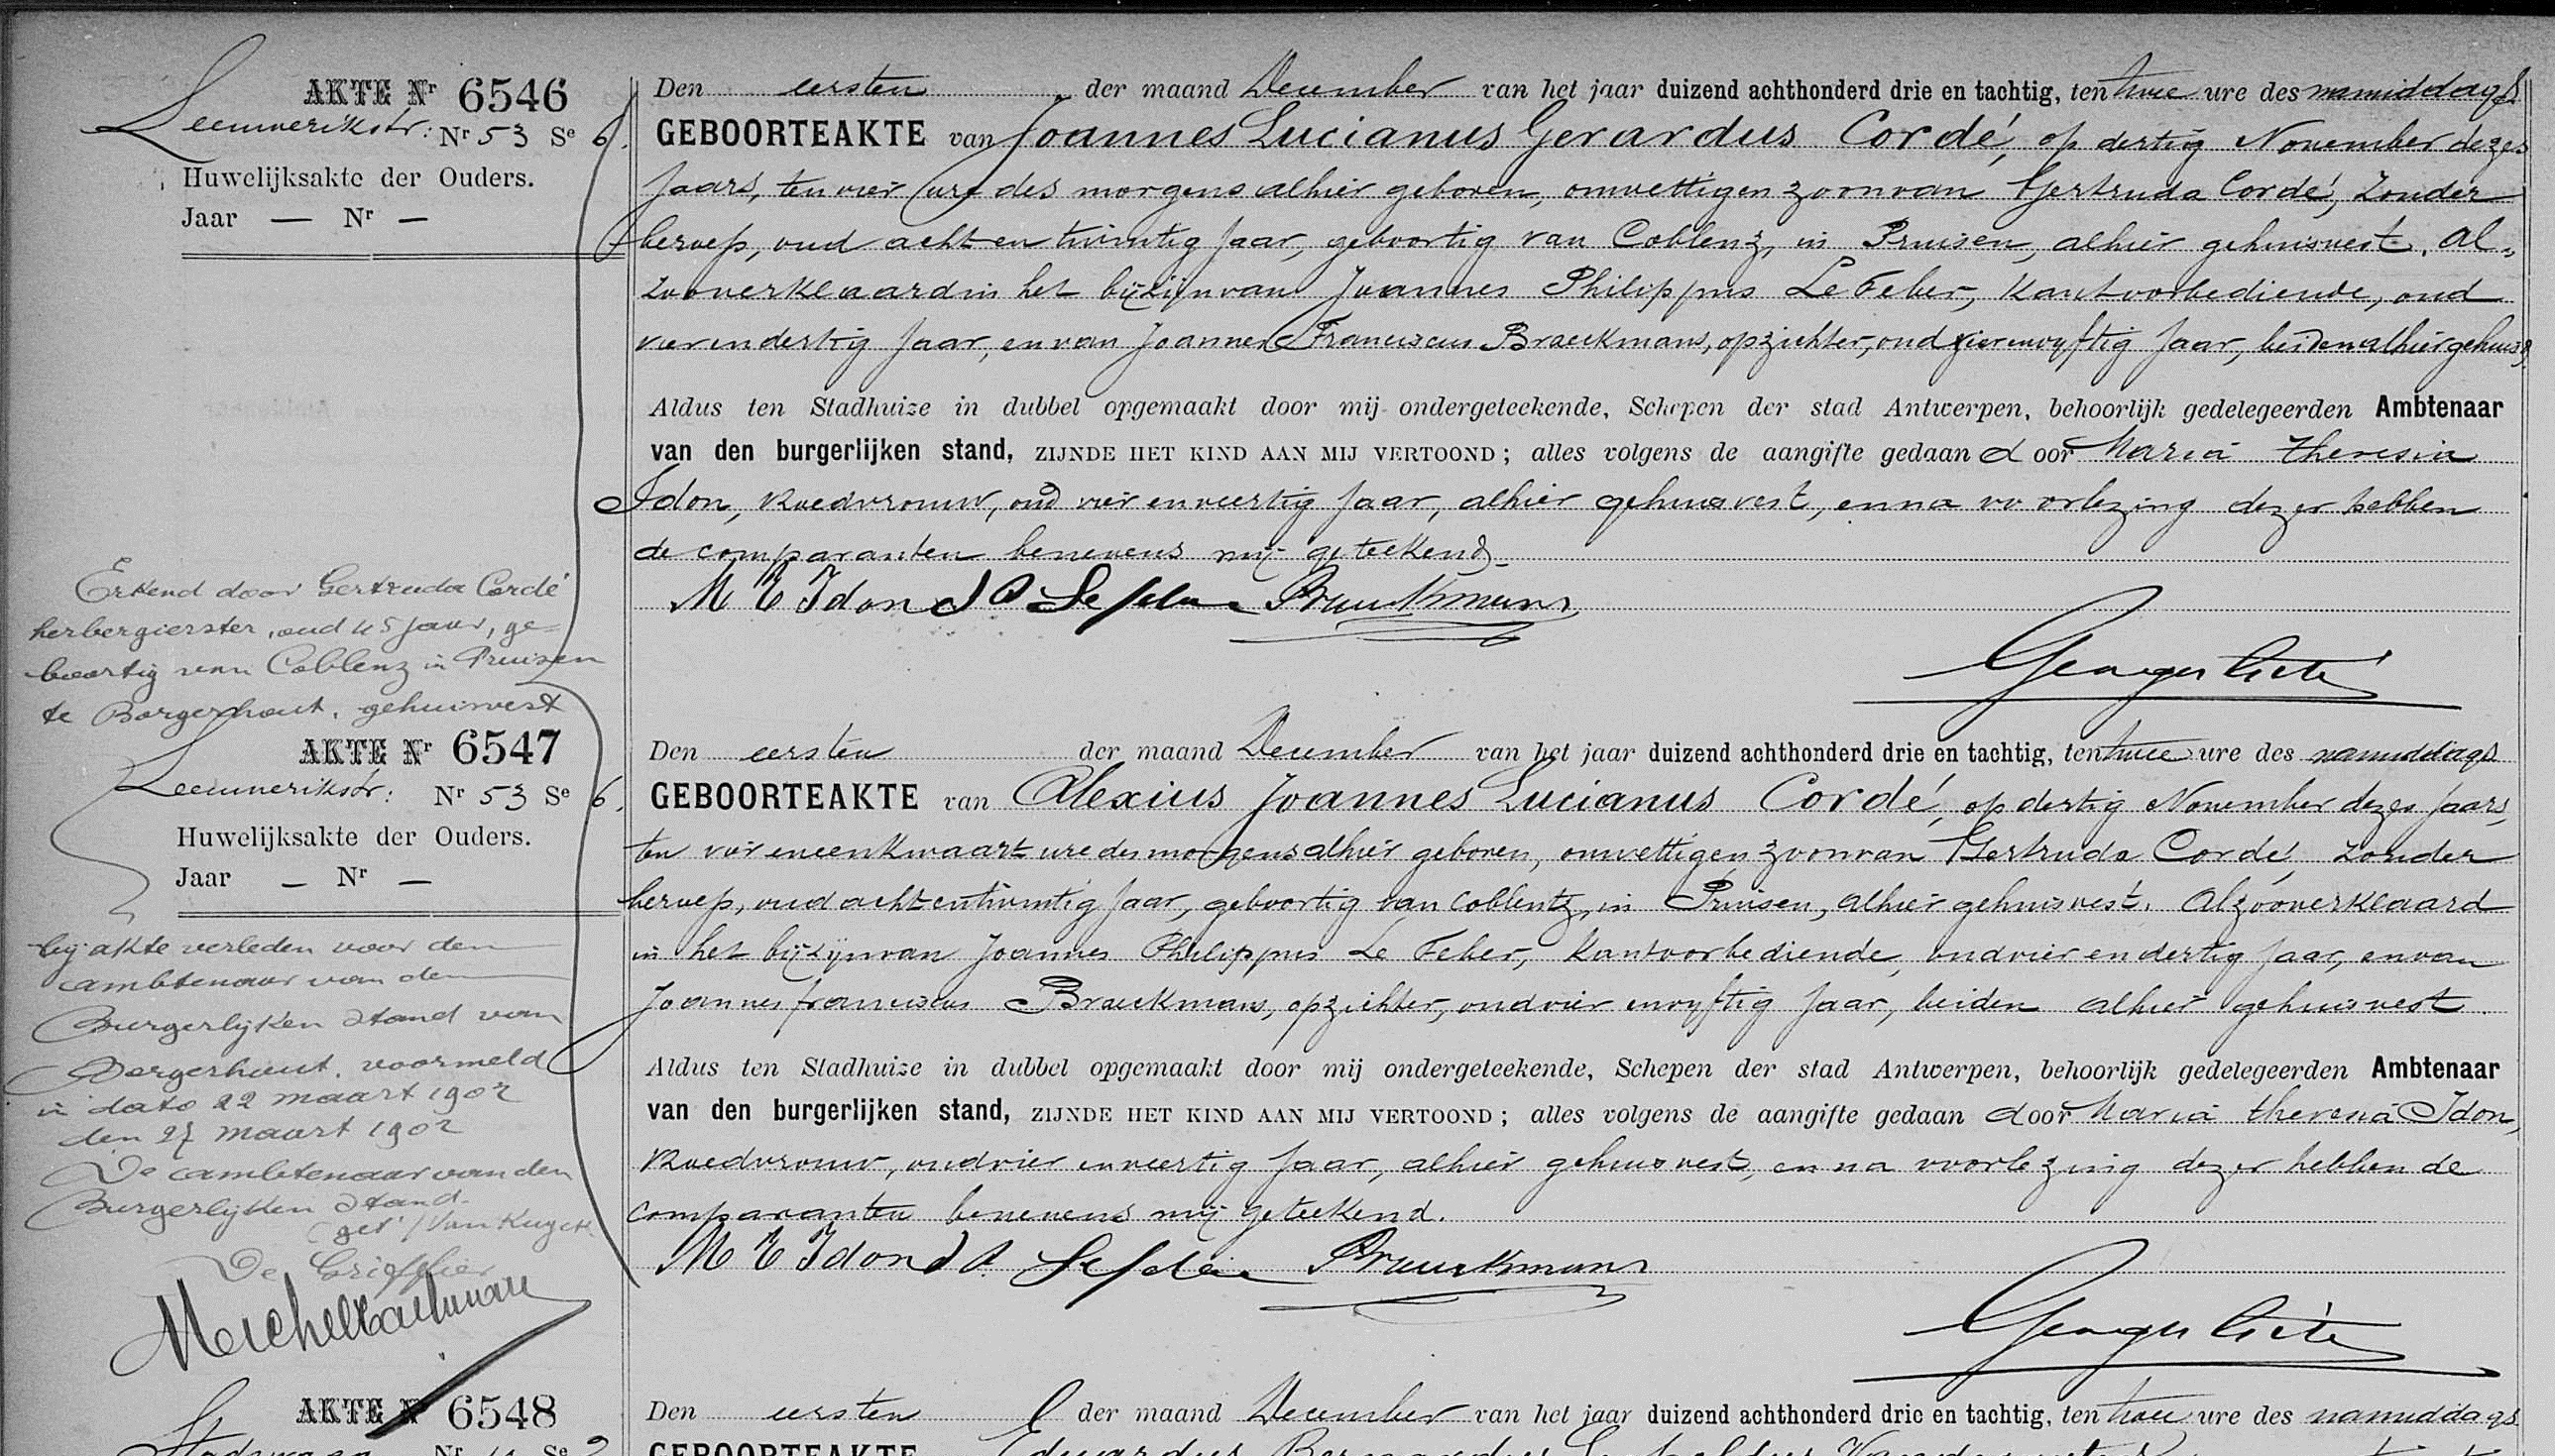 AKTE Nr 6546
Leeuwerikstr: Nr 53 Se 6.
Huwelijksakte der Ouders.
Jaar — Nr —
Den eersten der maand December van het jaar duizend achthonderd drie en tachtig, ten twee ure des namiddags
GEBOORTEAKTE van Joannes Lucianus Gerardus Cordé, op dertig November dezes
jaars, ten vier ure des morgens alhier geboren, onwettigen zoon van Gertruda Cordé, zonder
beroep, oud acht en twintig jaar, geboortig van Coblenz, in Pruisen, alhier gehuisvest. Al-
zoo verklaard in het bijzijn van Joannes Philippus Le Feber, kantoorbediende, oud
vier en dertig jaar, en van Joannes Franciscus Braeckmans, opzichter, oud vier en vyftig jaar, beiden alhier gehuisv.
Aldus ten Stadhuize in dubbel opgemaakt door mij ondergeteekende, Schepen der stad Antwerpen, behoorlijk gedelegeerden Ambtenaar
van den burgerlijken stand, ZIJNDE HET KIND AAN MIJ VERTOOND; alles volgens de aangifte gedaan door Maria Theresia
Idon, Vroedvrouw, oud vier en veertig jaar, alhier gehuisvest, en na voorlezing dezer hebben
de comparanten benevens mij geteekend.
M T Idon J P Le feber Braeckmans
Georges Gits
Erkend door Gertruda Cordé
herbergierster, oud 45 jaar, ge=
boortig van Coblenz in Pruizen
te Borgerhout, gehuisvest
AKTE Nr 6547
Leeuwerikstr: Nr 53 Se 6.
Huwelijksakte der Ouders.
Jaar — Nr —
bij akte verleden voor den
ambtenaar van den
Burgerlijken Stand van
Borgerhout, voormeld
in dato 22 maart 1902
den 27 maart 1902
De ambtenaar van den
Burgerlijken Stand.
(get) Van Kuyck
De Griffier
Den eersten der maand December van het jaar duizend achthonderd drie en tachtig, ten twee ure des namiddags
GEBOORTEAKTE van Alexius Joannes Lucianus Cordé, op dertig November dezes jaars,
ten vier en een kwaart ure des morgens alhier geboren, onwettigen zoon van Gertruda Cordé, zonder
beroep, oud acht en twintig jaar, geboortig van Coblentz, in Pruisen, alhier gehuisvest. Alzoo verklaard
in het bijzijn van Joannes Philippus Le Feber, kantoorbediende, oud vier en dertig jaar, en van
Joannes franciscus Braeckmans, opzichter, oud vier en vyftig jaar, beiden alhier gehuisvest.
Aldus ten Stadhuize in dubbel opgemaakt door mij ondergeteekende, Schepen der stad Antwerpen, behoorlijk gedelegeerden Ambtenaar
van den burgerlijken stand, ZIJNDE HET KIND AAN MIJ VERTOOND; alles volgens de aangifte gedaan door Maria Theresia Idon,
Vroedvrouw, oud vier en veertig jaar, alhier gehuisvest, en na voorlezing dezer hebben de
comparanten benevens mij geteekend.
M T Idon J P Le feber Braeckmans
Georges Gits
AKTE Nr 6548
Den eersten der maand December van het jaar duizend achthonderd drie en tachtig, ten twee ure des namiddags
GEBOORTEAKTE